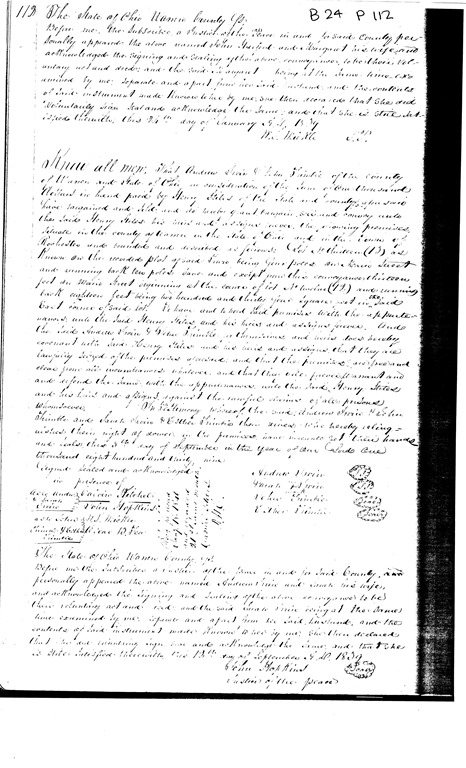 B 24 P 112
112 The State of Ohio Warren County SS;
Before me, the Subscriber a Justice of the Peace in and for Said County per-
sonally appeared the above named John and Margaret his wife, and
acknowledged the Signing and Sealing of the above conveyance, to be their vol-
untary act and deed; and the said Margaret being at the Same time ex-
amined by me, Separate and apart from her said husband, and the contents
of Said instrument made known to her by me, She then declared that She did
Voluntarily Sign Seal and acknowledge the Same, and that she is Still Sat-
isfied therewith, this 24th day of January A.D. 1839
Know all men, That Andrew Irwin & John of the County
of Warren and State of Ohio, in consideration of the Sum of One thousand
Dollars in hand paid by Henry States of the State and County aforesaid
have bargained and Sold, and do hereby grant bargain, Sell and convey unto
the Said Henry States his heirs and assigns forever, the following premises,
Situate in the county of Warren in the State of Ohio and in the town of
Rochester and bounded and described as follows; Lot Number (13) as
Known on the recorded plat of said town being four poles on Main Street
and running back ten poles Save and except from this conveyance thirteen
feet on Main Street beginning at the corner of lot Number (12) and running
back eighteen feet being two hundred and thirty four Square feet in Said
East corner of Said lot. To have and to hold Said premises with the appurte-
nances, unto the Said Henry States, and his heirs and assigns forever. And
the Said Andrew Irwin & John for themselves and heirs does hereby
covenant with Said Henry States and his heirs and assigns that they are
lawfully Seized of the premises aforesaid, and that the premises are free and
clear from all incumbrances whatever and that they will forever Warrant and
and defend the Same with the appurtenances, unto the Said Henry States
and his heirs and assigns against the lawful claims of all persons
Whomsoever, In Testimony Whereof the Said Andrew Irwin & John
and Sarah Irwin & Esther their wives, who hereby relinq-
uishes their right of dower in the premises have hereunto set their hands
and Seals, this 5th day of September in the Year of Our Lord One
thousand eight hundred and thirty nine
Signed Sealed and acknowledged
in presence of
Andrew Irwin
Sarah Irwin
John
Esther
John Hopkins
The State of Ohio Warren County SS
Before me the Subscriber a Justice of the Peace in and for Said County, and
personally appeared the above named Andrew Irwin and Sarah his wife,
and acknowledged the Signing and Sealing of the above conveyance to be
their voluntary act and deed, and the said Sarah Irwin being at the Same
time examined by me, Separate and apart from her Said husband, and the
contents of Said instrument made Known to her by me, She then declared
that She did voluntarily Sign Seal and acknowledge the Same, and that She
is Still Satisfied therewith, this 13th day of September A.D. 1839
John Hopkins
Justice of the Peace